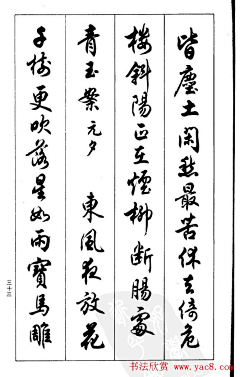 皆塵土閑愁最苦休去倚危
樓斜陽正在煙柳斷腸處
青玉案元夕 東風夜放花
千樹更吹落星如雨寶馬雕
三十三
书法欣赏
www.yac8.com